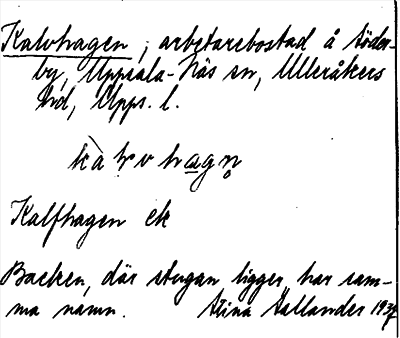 Kalvhagen, arbetarebostad å Söder-
by, Uppsala-Näs sn, Ulleråkers
hd, Upps. l.
Kalfhagen ek
Backen, där stugan ligger har sam-
ma namn. Stina Sällander 1937